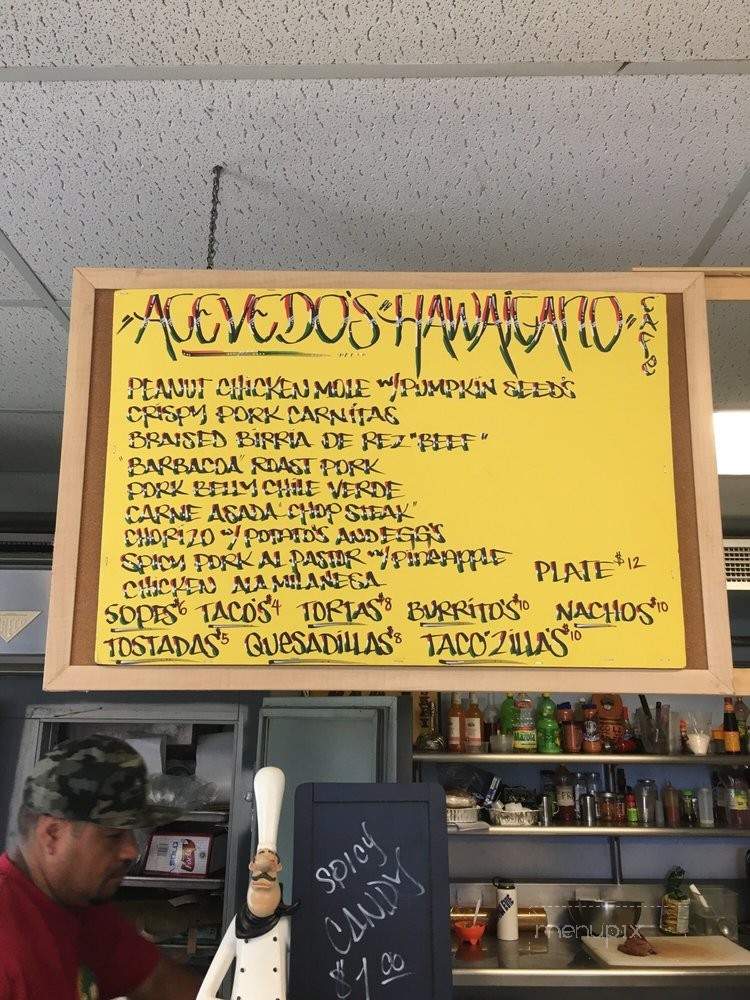 "ACEVEDO'S" HAWAICANO" CAFE
PEANUT CHICKEN MOLE w/PUMPKIN SEEDS
CRISPY PORK CARNITAS
BRAISED BIRRIA DE REZ "BEEF"
"BARBACOA" ROAST PORK
PORK BELLY CHILE VERDE
CARNE ASADA "CHOP STEAK"
CHORIZO w/ POTATO'S AND EGG'S
SPICY PORK AL PASTOR w/PINEAPPLE
CHICKEN ALA MILANESA
PLATE $12
SOPES $6 TACO'S $4 TORTAS $8 BURRITO'S $10 NACHOS $10
TOSTADAS $5 QUESADILLAS $8 TACO'ZILLA'S $10
SPICY
CANDY
$1.00
menupix